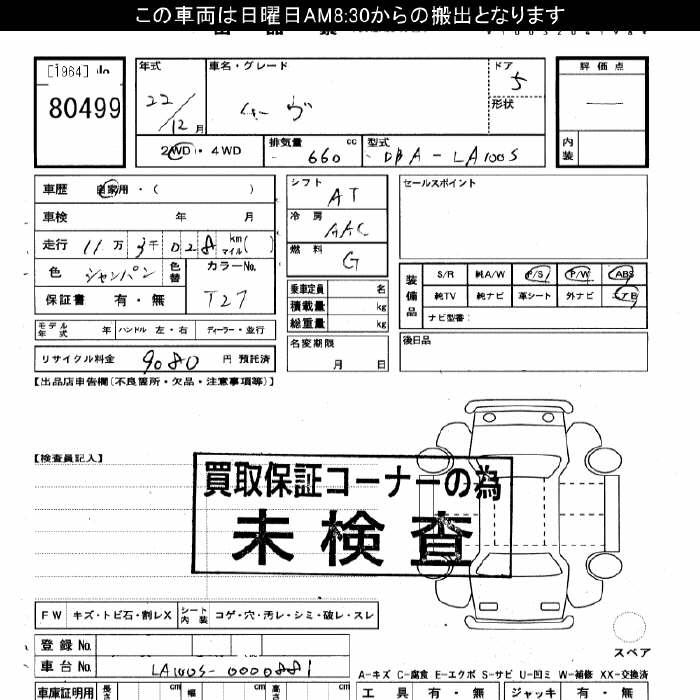 この車両は日曜日AM8:30からの搬出となります
[1964]
80499
年式 車名・グレード ドア 評価点
22/12月 ムーヴ 5
形状
2WD・4WD 排気量 660 cc 型式 DBA-LA100S 内装
車歴 自家用・( )
シフト AT
セールスポイント
車検 年 月
冷房 AAC
走行 11万3千028 km マイル( )
燃料 G
色 シャンパン 色替 カラーNo. T27
保証書 有・無
乗車定員 名
積載量 kg
総重量 kg
装備品 S/R 純A/W P/S P/W ABS
純TV 純ナビ 革シート 外ナビ エアB
ナビ型番:
モデル年式 年 ハンドル 左・右 ディーラー・並行
名変期限 月 日
後日品
リサイクル料金 9080 円 預託済
【出品店申告欄(不良箇所・欠品・注意事項等)】
【検査員記入】
買取保証コーナーの為
未検査
FW キズ・トビ石・割レX シート内装 コゲ・穴・汚レ・シミ・破レ・スレ
スペア
登録No.
車台No. LA100S-0000881
A-キズ C-腐食 E-エクボ S-サビ U-凹ミ W-補修 XX-交換済
車庫証明用 長さ cm 幅 cm 高さ cm
工具 有・無 ジャッキ 有・無